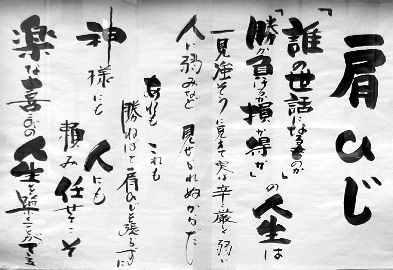 肩ひじ
「誰の世話になるものか」
「勝か負けるか損か得か」の人生は
一見強そうに見えて実は辛く厳しく弱い
人に弱みなど見せられぬからだ
あれもこれも
勝ねばと肩ひじを張らずに
神様にも人にも
頼み任せてこそ
楽な喜びの人生を